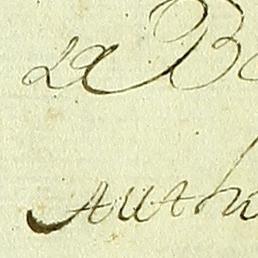 La B
Auth